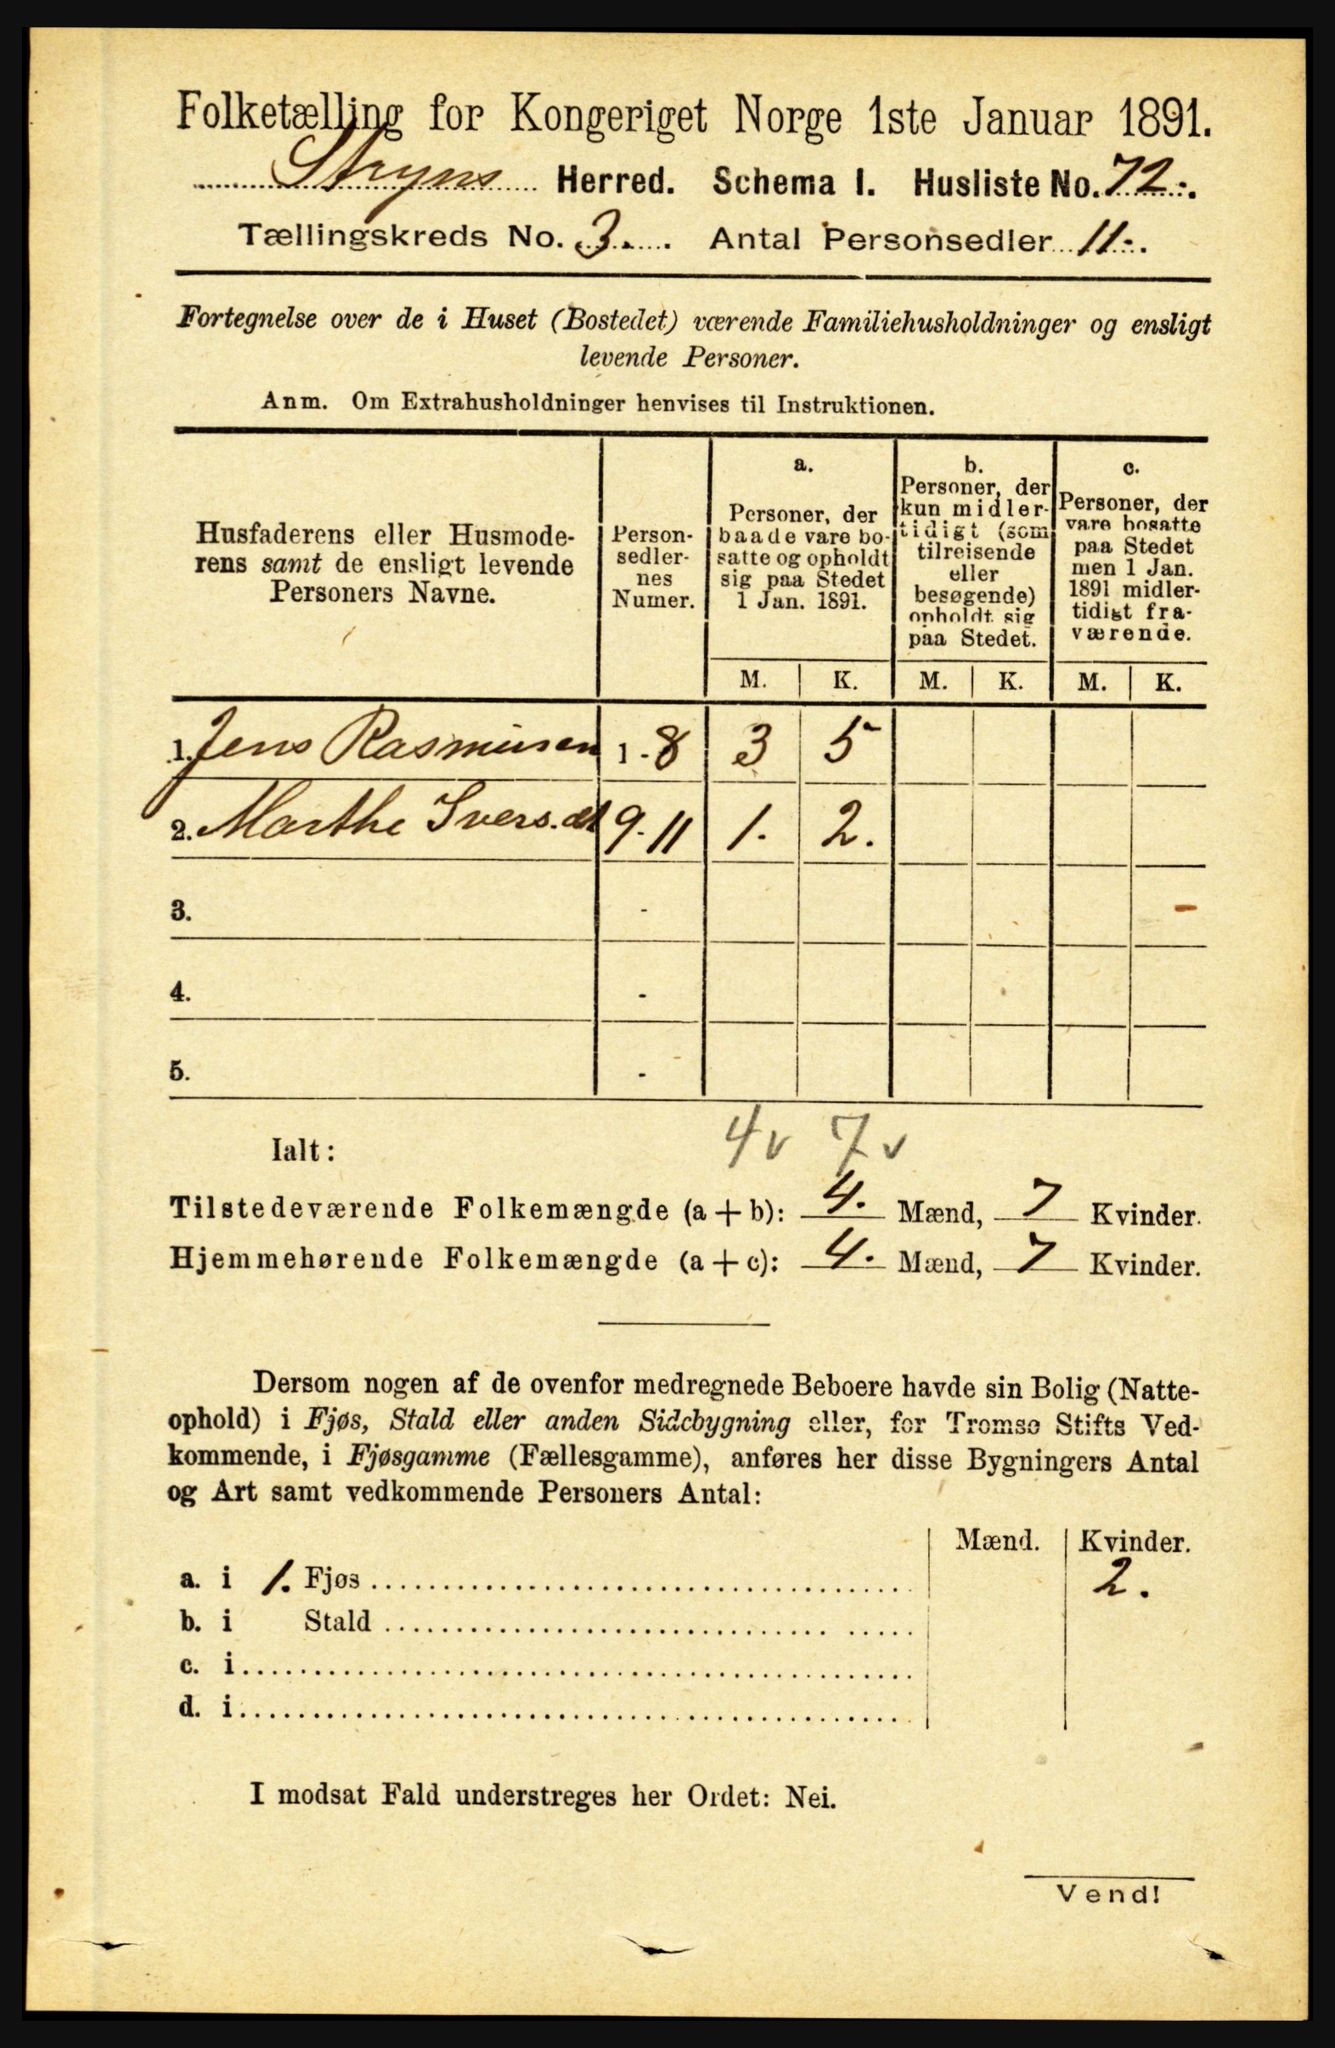 Folketælling for Kongeriget Norge 1ste Januar 1891.
Stryns Herred. Schema I. Husliste No. 72.
Tællingskreds No. 3. Antal Personsedler 11.
Fortegnelse over de i Huset (Bostedet) værende Familiehusholdninger og ensligt
levende Personer.
Anm. Om Extrahusholdninger henvises til Instruktionen.
Husfaderens eller Husmode-
rens samt de ensligt levende
Personers Navne.
Person-
sedler-
nes
Numer.
a.
Personer, der
baade vare bo-
satte og opholdt
sig paa Stedet
1 Jan. 1891.
b.
Personer, der
kun midler-
tidigt (som
tilreisende
eller
besøgende)
opholdt sig
paa Stedet.
c.
Personer, der
vare bosatte
paa Stedet
men 1 Jan.
1891 midler-
tidigt fra-
værende.
M. K. M. K. M. K.
1. Jens Rasmusen 1 - 8 3 5
2. Marthe Iversdt 9 - 11 1. 2.
3. -
4. -
5. -
4v 7v
Ialt:
Tilstedeværende Folkemængde (a + b): 4. Mænd, 7 Kvinder.
Hjemmehørende Folkemængde (a + c): 4. Mænd, 7 Kvinder.
Dersom nogen af de ovenfor medregnede Beboere havde sin Bolig (Natte-
ophold) i Fjøs, Stald eller anden Sidebygning eller, for Tromsø Stifts Ved-
kommende, i Fjøsgamme (Fællesgamme), anføres her disse Bygningers Antal
og Art samt vedkommende Personers Antal:
Mænd. Kvinder.
a. i 1. Fjøs 2.
b. i Stald
c. i
d. i
I modsat Fald understreges her Ordet: Nei.
Vend!